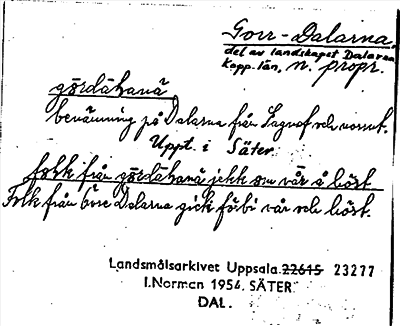 Gorr-Dalarna,
del av landskapet Dalarna
Kopp. län, n. propr.
gördåhanä
benämning på Dalarna från och norrut.
Uppt. i Säter.
folk från gördåhanä jekk om vår å höst
Folk från övre Dalarna gick förbi vår och höst.
Landsmålsarkivet Uppsala. 22615 23277
I. Norman 1954. SÄTER.
DAL.